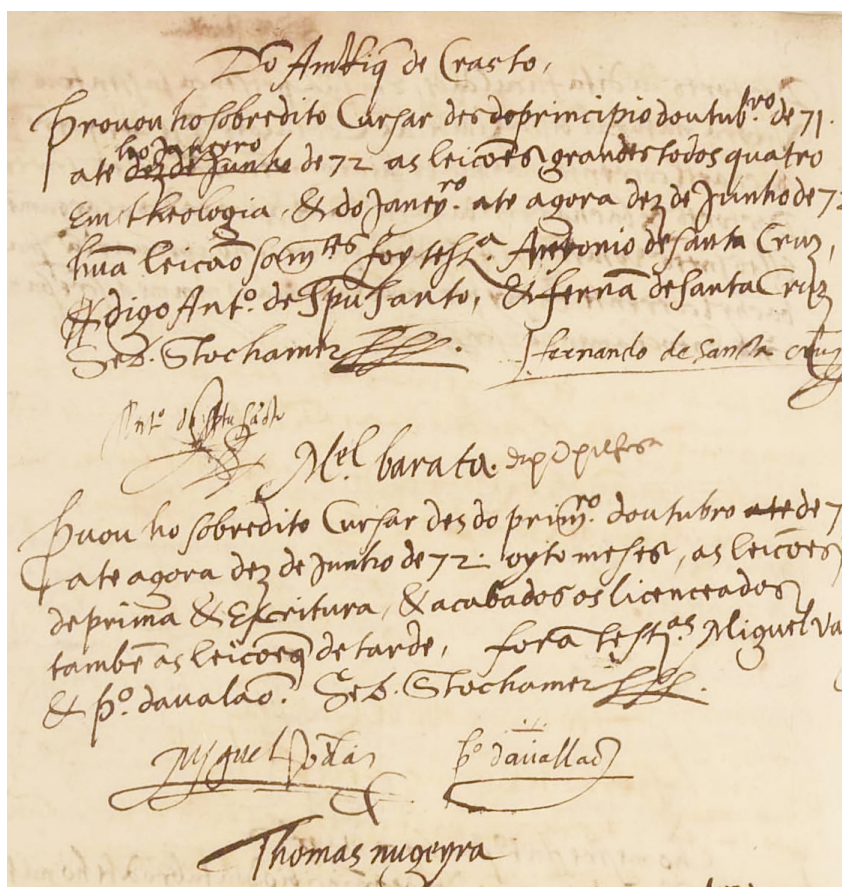 Dõ Anrriq̃ de Crasto,
Prouou ho sobredito Cursar des do principio doutubro de 71.
ho Janeyro
ate dez de Junho de 72 as leicões grandes todos quatro
Em theologia, & do Janeyro. ate agora dez de Junho de 72
huã leicaõ somtes foy testa. Antonio de santa Cruz,
& digo Anto. de Spũ santo, & fernã de santa Cruz
Seb. Stochamer
fernando de sancta cruz
Anto. do sptu sãto
Mel barata.
Prouou ho sobredito Cursar des do primro. doutubro ate de 7
ate agora dez de Junho de 72. oyto meses, as leicões
de prima & Escritura, & acabados os licenceados
tambẽ as leicões de tarde, forã testas Miguel Va
& po. daualaõ. Seb. Stochamer
Miguel
po davallaõ
Thomas nugeyra